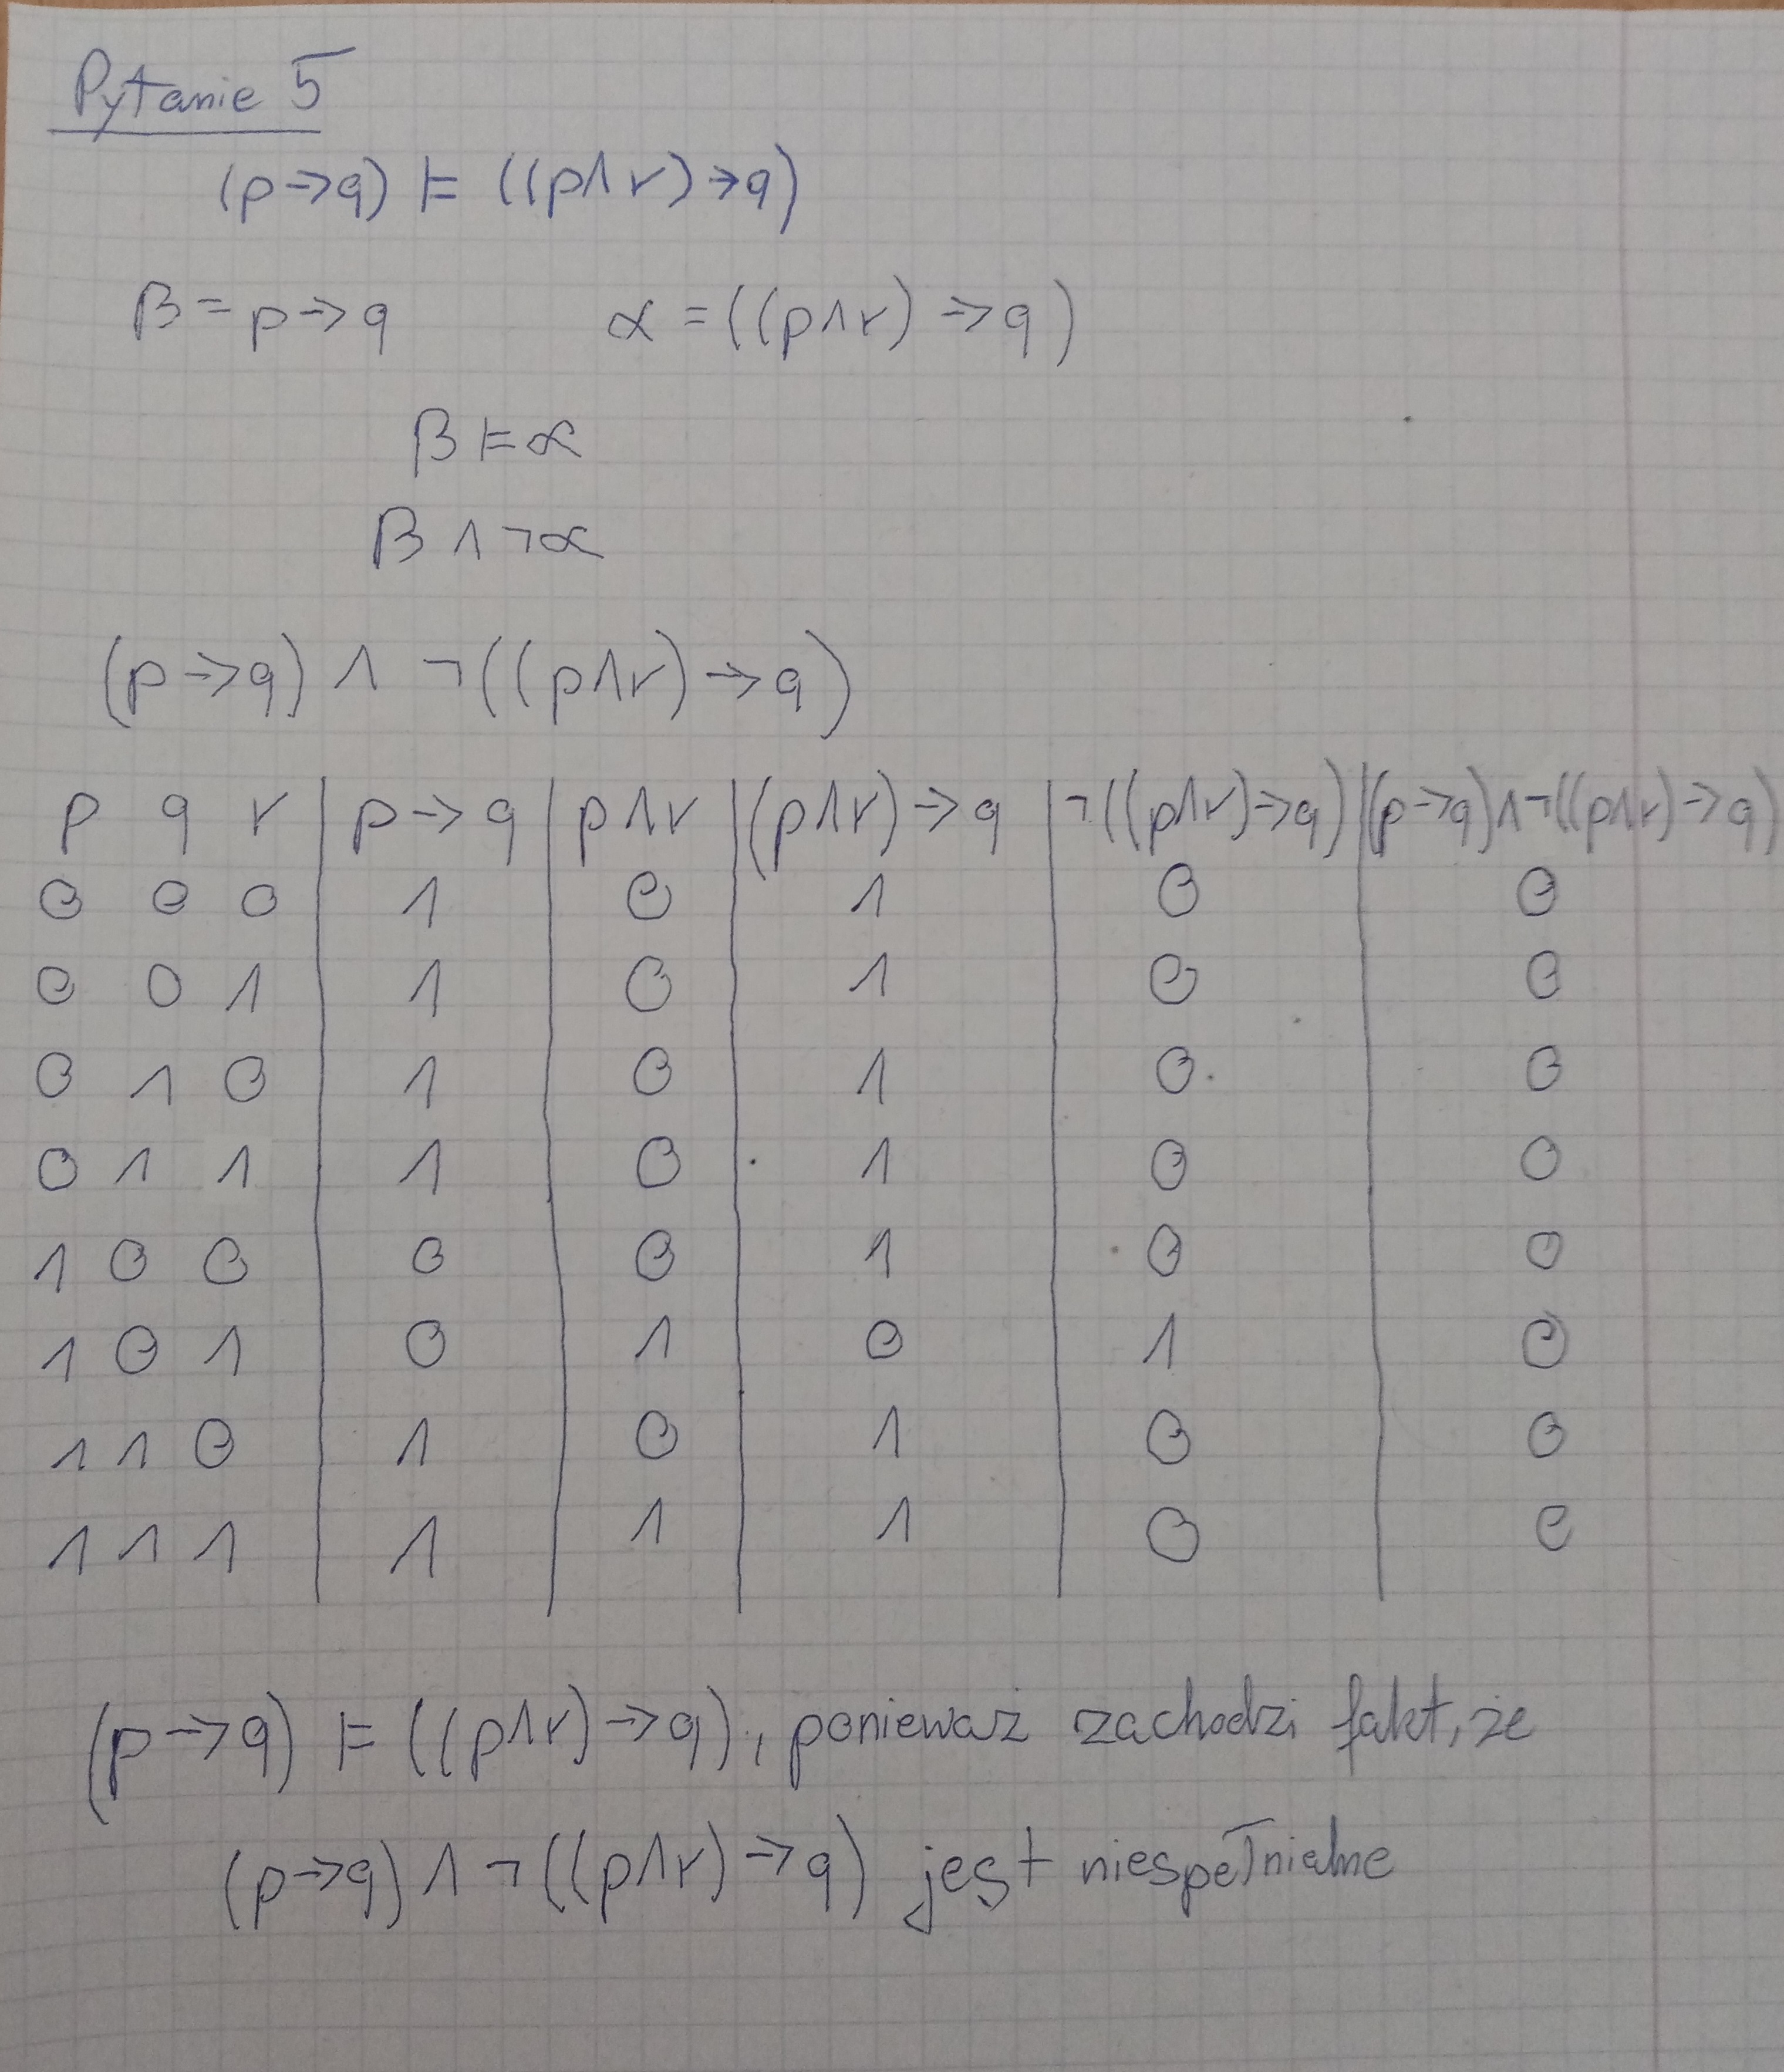 Pytanie 5
(p→q) ⊨ ((p∧r)→q)
β = p→q α = ((p∧r)→q)
β ⊨ α
β ∧ ¬α
(p→q) ∧ ¬((p∧r)→q)
p q r | p→q | p∧r | (p∧r)→q | ¬((p∧r)→q) | (p→q)∧¬((p∧r)→q)
0 0 0 | 1 | 0 | 1 | 0 | 0
0 0 1 | 1 | 0 | 1 | 0 | 0
0 1 0 | 1 | 0 | 1 | 0 | 0
0 1 1 | 1 | 0 | 1 | 0 | 0
1 0 0 | 0 | 0 | 1 | 0 | 0
1 0 1 | 0 | 1 | 0 | 1 | 0
1 1 0 | 1 | 0 | 1 | 0 | 0
1 1 1 | 1 | 1 | 1 | 0 | 0
(p→q) ⊨ ((p∧r)→q), ponieważ zachodzi fakt, że
(p→q) ∧ ¬((p∧r)→q) jest niespełnialne